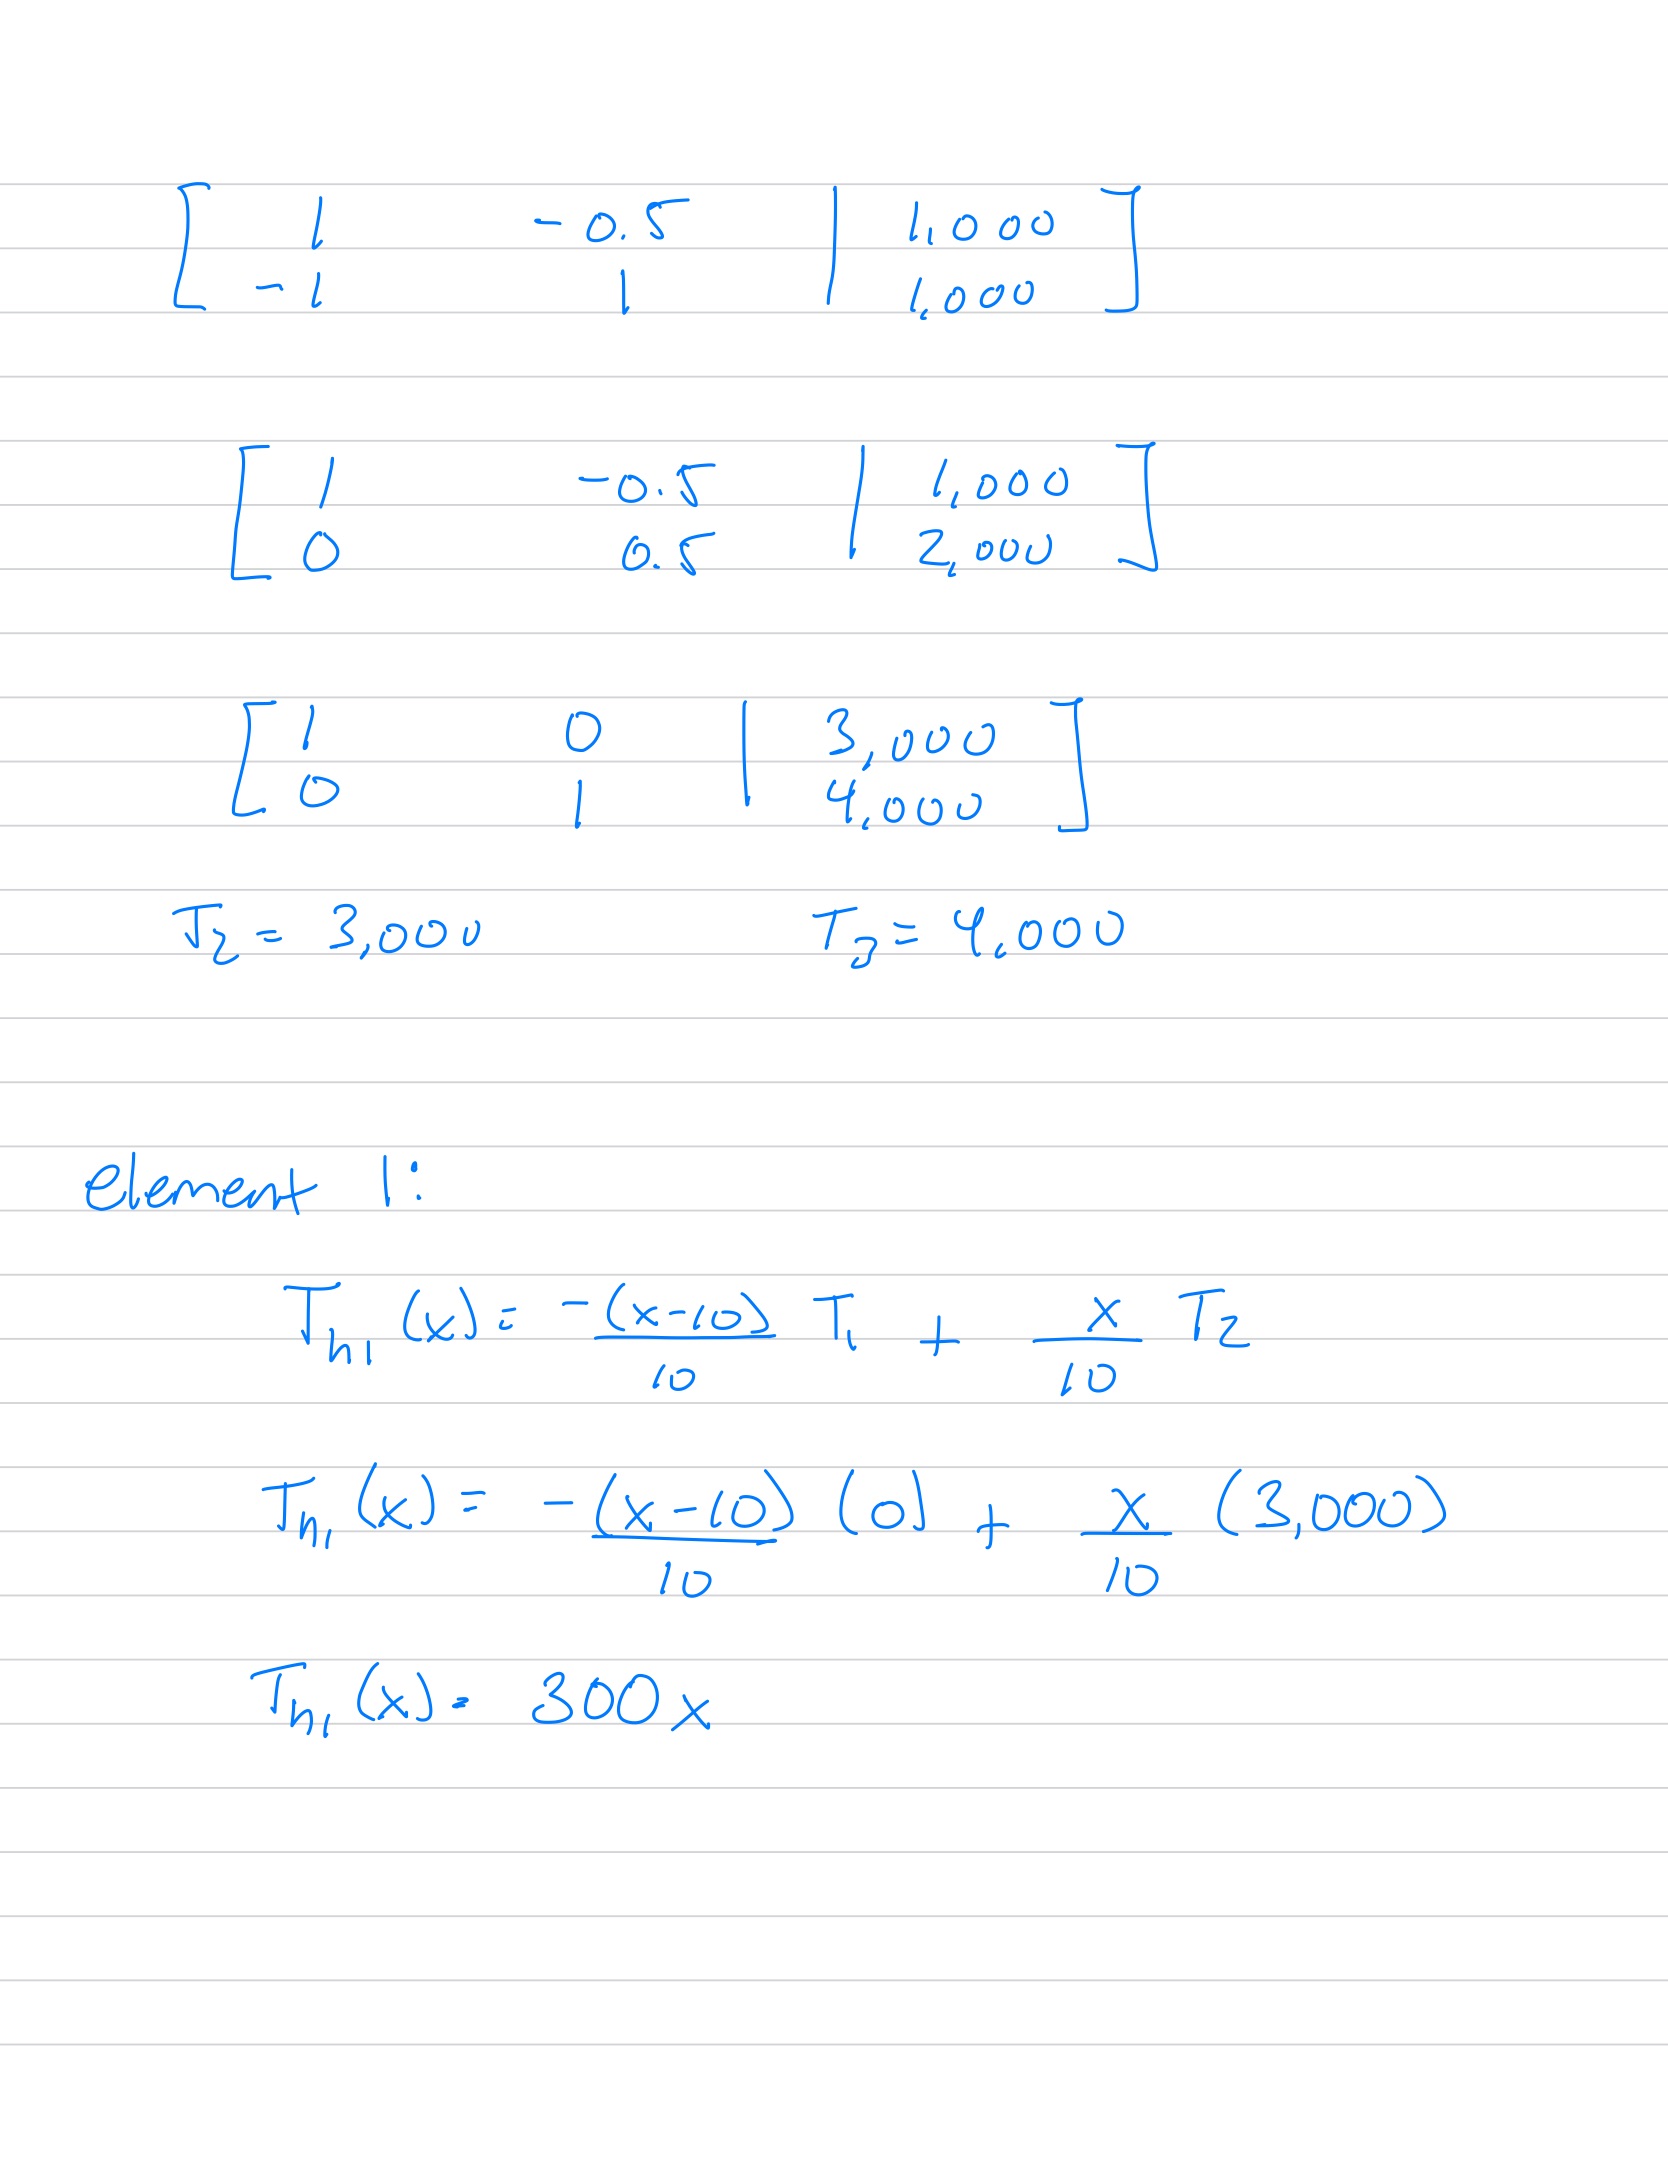 [ 1 -0.5 | 1,000 ]
[ -1 1 | 1,000 ]
[ 1 -0.5 | 1,000 ]
[ 0 0.5 | 2,000 ]
[ 1 0 | 3,000 ]
[ 0 1 | 4,000 ]
T₂ = 3,000 T₃ = 4,000
element 1:
Tₕ₁(x) = -(x-10)/10 T₁ + x/10 T₂
Tₕ₁(x) = -(x-10)/10 (0) + x/10 (3,000)
Tₕ₁(x) = 300x